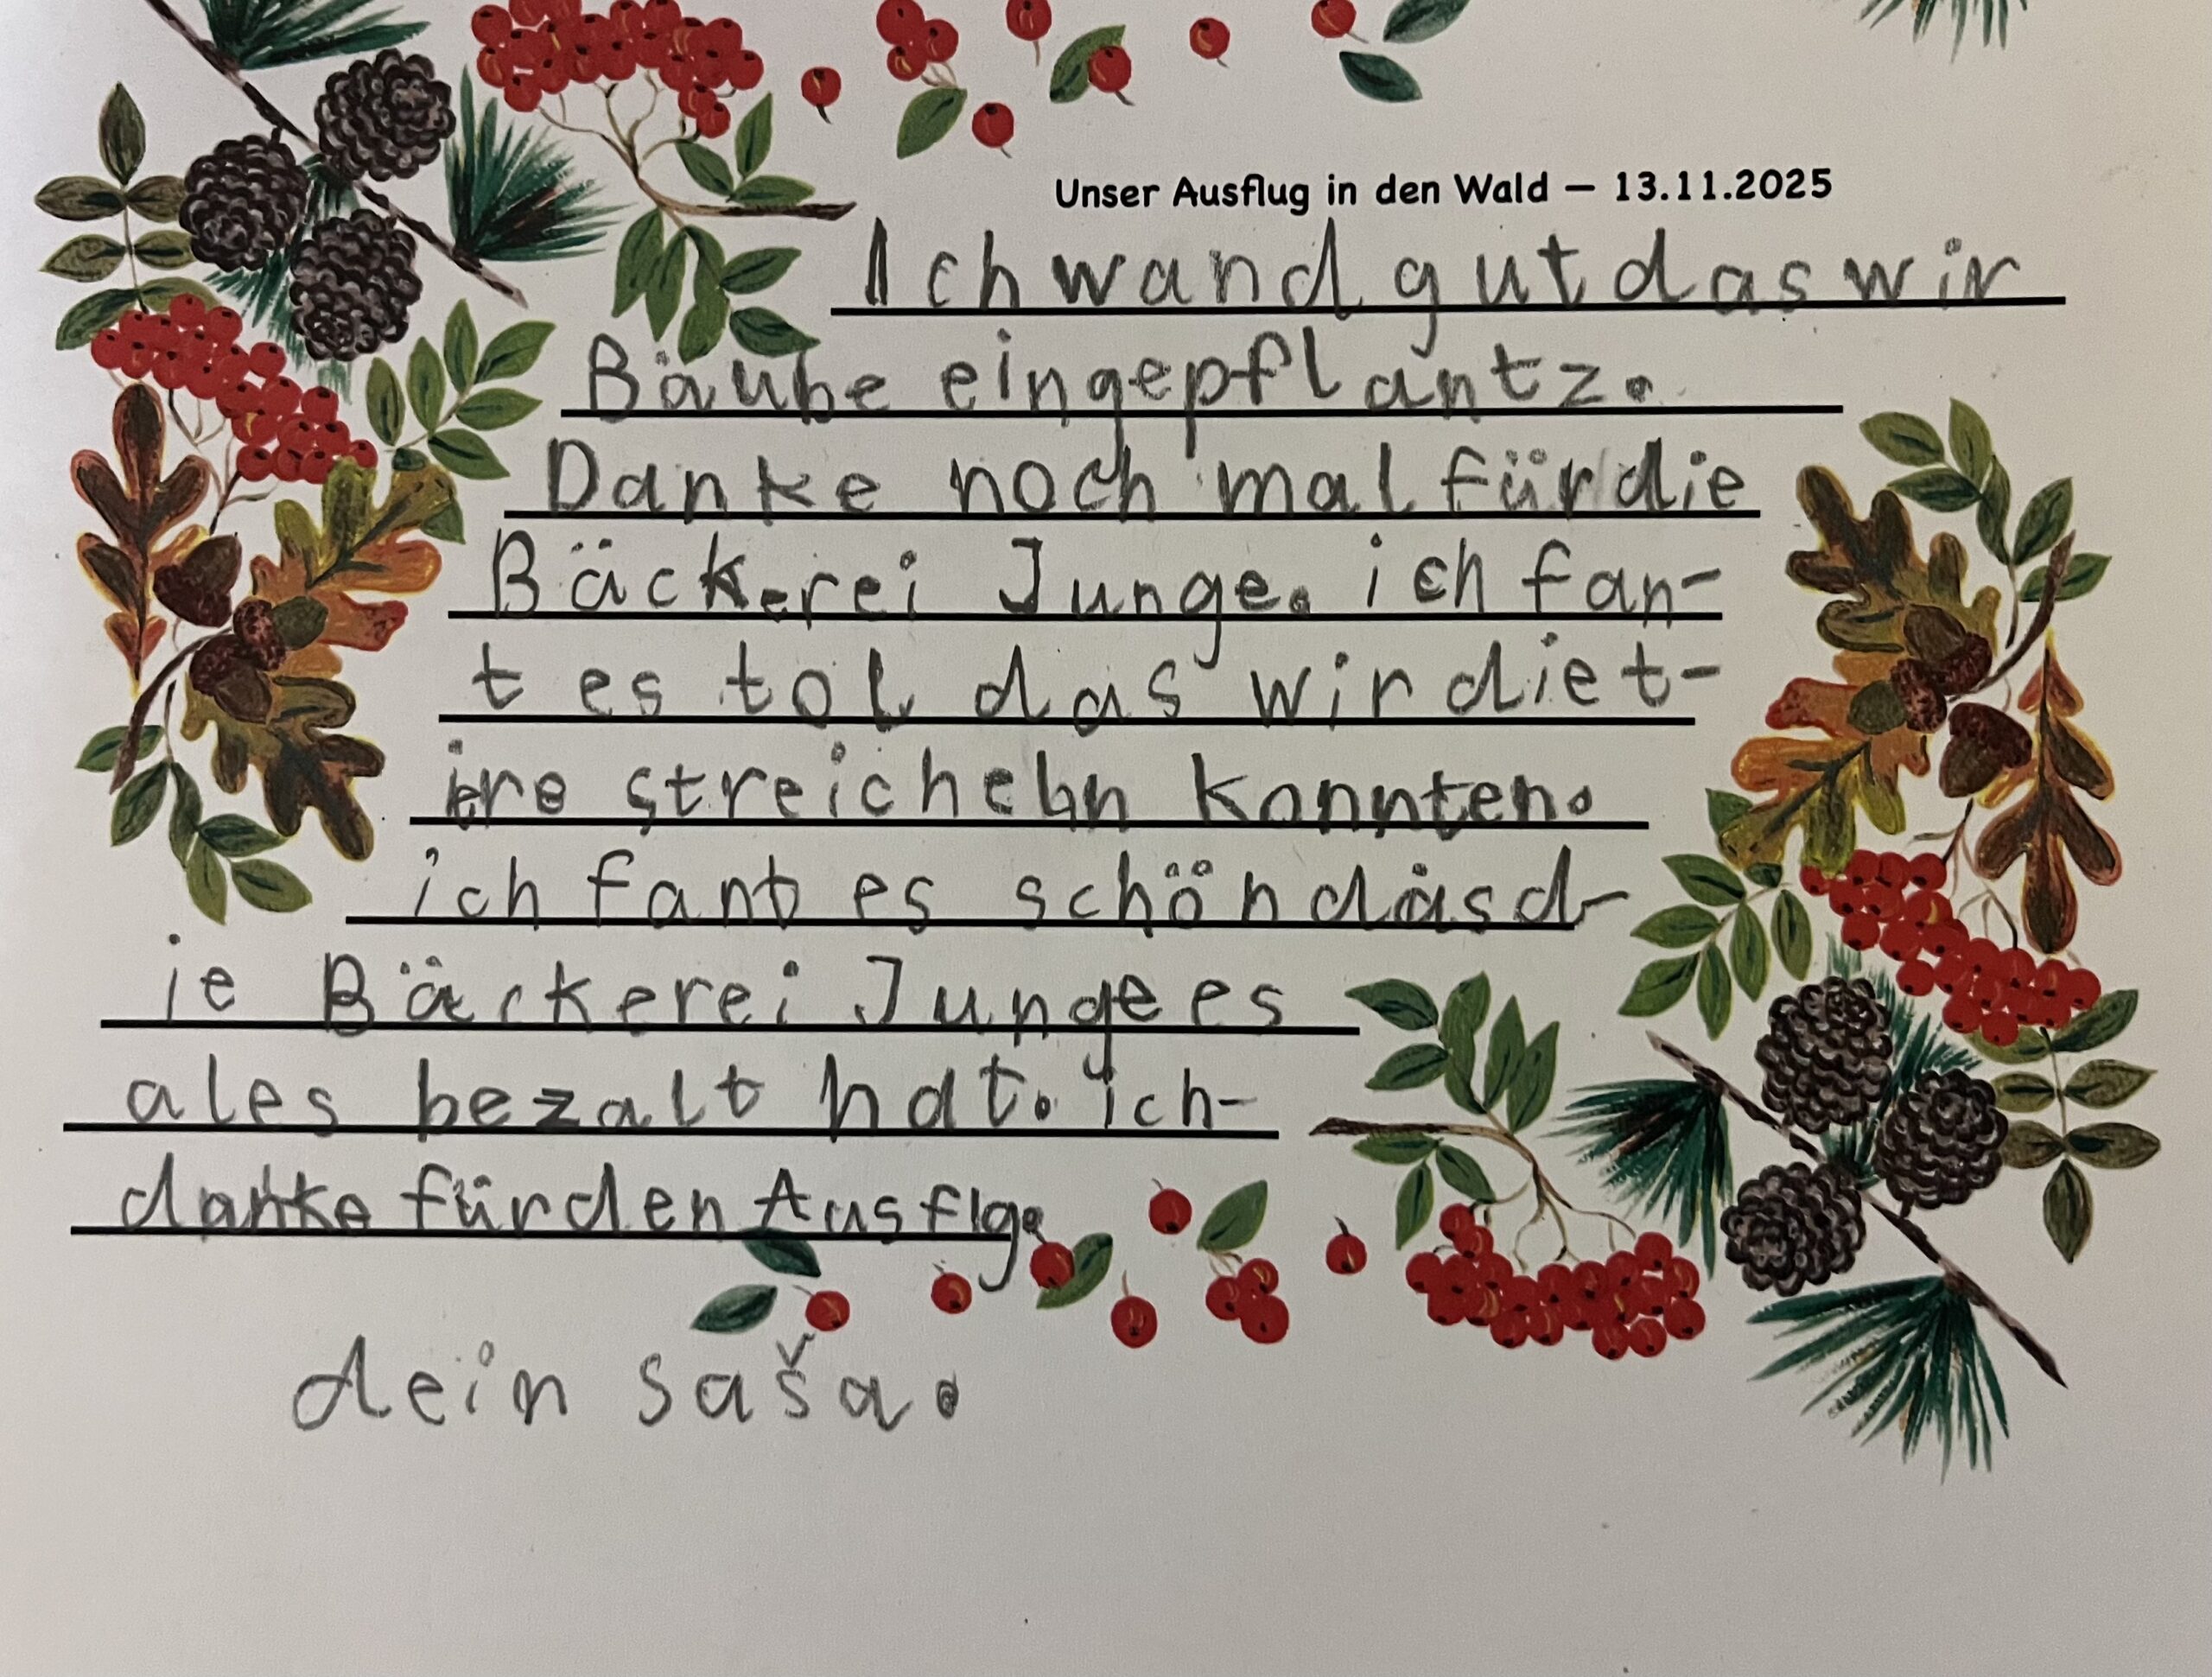 Unser Ausflug in den Wald – 13.11.2025
Ich wand gut das wir
Bäube eingepflantz.
Danke noch mal für die
Bäckerei Junge. ich fan-
t es tol das wir diet-
ire streicheln konnten.
ich fant es schön dasd-
ie Bäckerei Junge es
ales bezalt hat. ich-
danke für den Ausflg.
dein saša.